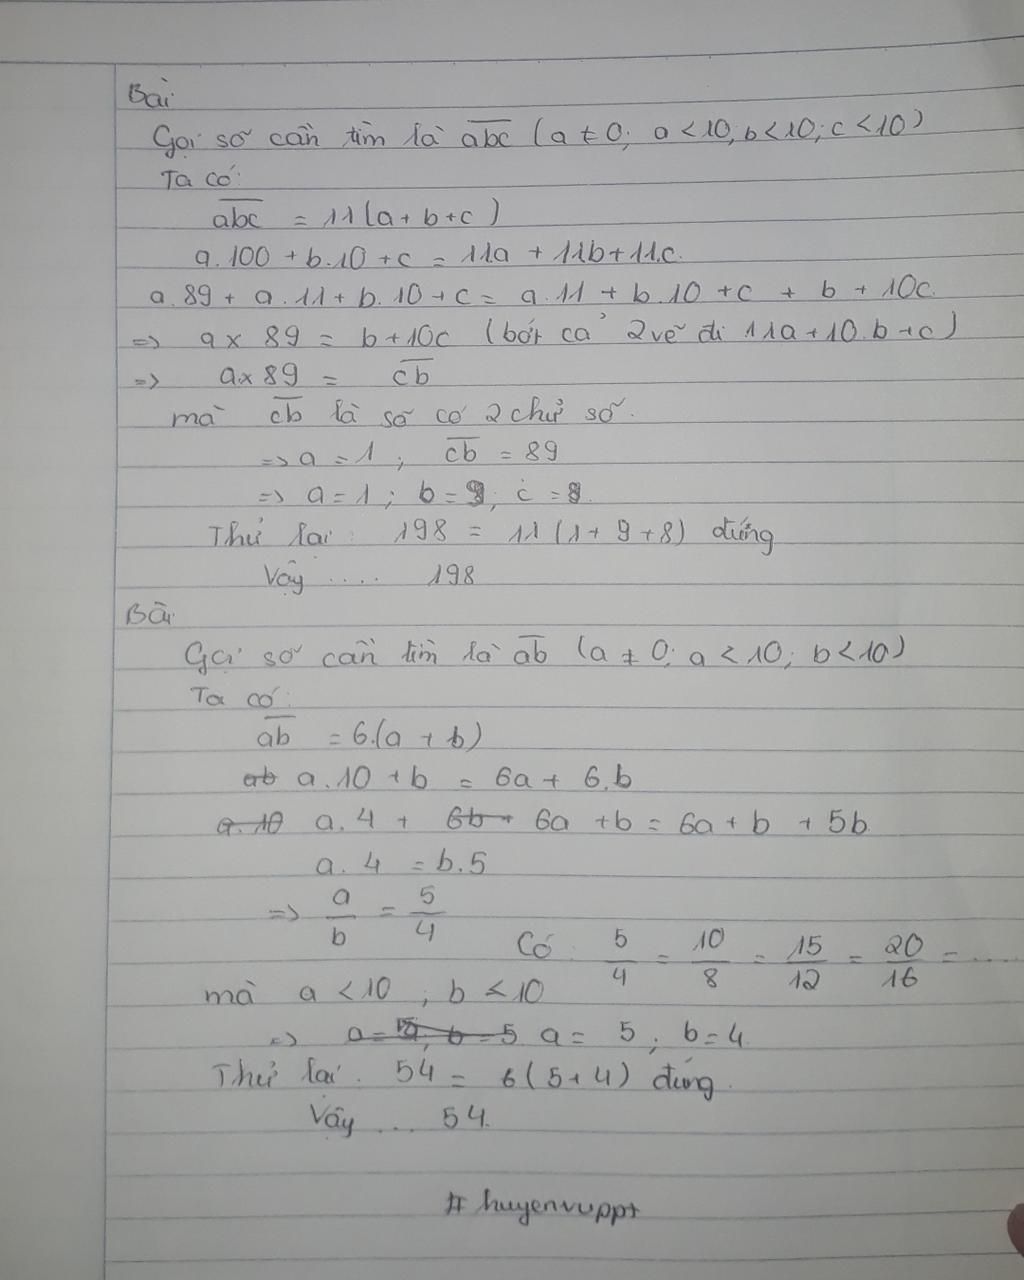 Bài
Gọi số cần tìm là abc (a ≠ 0; a < 10; b < 10; c < 10)
Ta có:
abc = 11(a + b + c)
a.100 + b.10 + c = 11a + 11b + 11.c
a.89 + a.11 + b.10 + c = a.11 + b.10 + c + b + 10c
=> a x 89 = b + 10c (bớt cả 2 vế đi 11a + 10.b + c)
=> a x 89 = cb
mà cb là số có 2 chữ số.
=> a = 1 ; cb = 89
=> a = 1 ; b = 9; c = 8.
Thử lại : 198 = 11 (1 + 9 + 8) đúng
Vậy .... 198
Bài
Gọi số cần tìm là ab (a ≠ 0; a < 10; b < 10)
Ta có:
ab = 6.(a + b)
ab a.10 + b = 6a + 6.b
a.10 a.4 + 6b + 6a + b = 6a + b + 5b
a.4 = b.5
=> a/b = 5/4
Có 5/4 = 10/8 = 15/12 = 20/16 = ....
mà a < 10 ; b < 10
=> a = , b = 5 a = 5 ; b = 4
Thử lại. 54 = 6(5 + 4) đúng.
Vậy ... 54.
# huyenvuppt